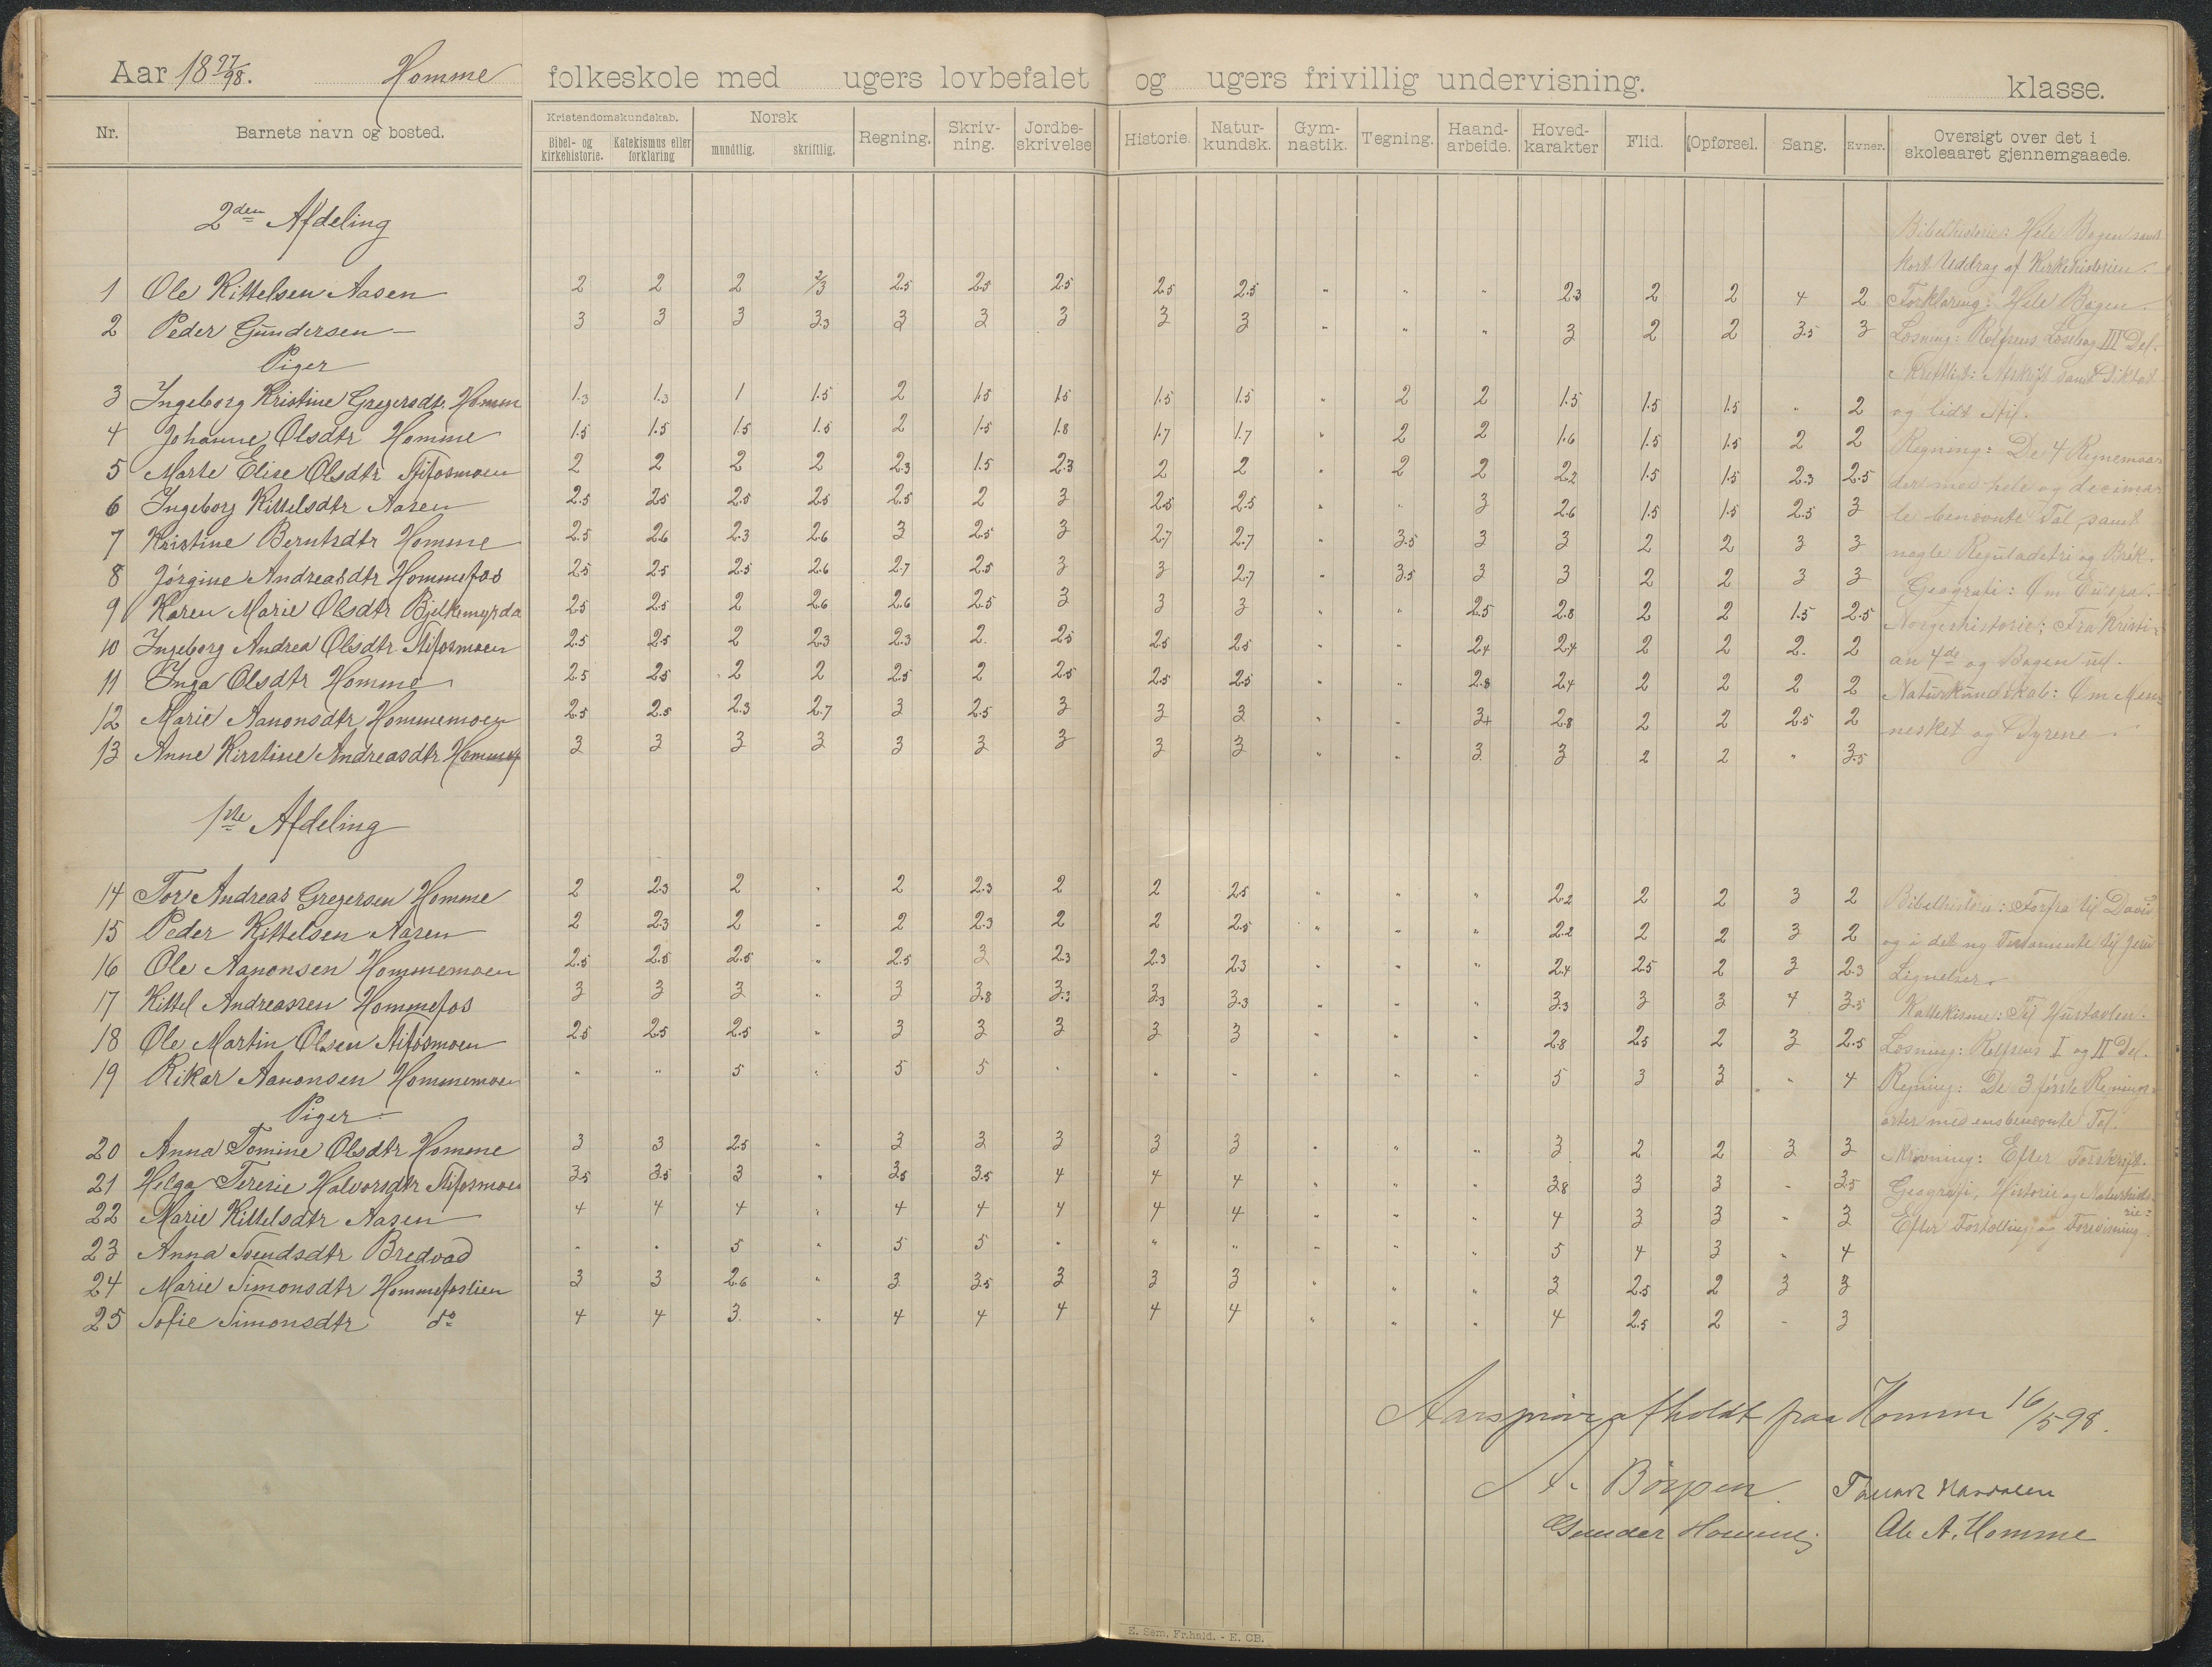 Aar 18 97/98. Homme folkeskole med ugers lovbefalet og ugers frivillig undervisning. klasse.
Nr. Barnets navn og bosted. Kristendomskundskab. Bibel- og kirkehistorie. Katekismus eller forklaring Norsk mundtlig. skriftlig. Regning. Skriv-ning. Jordbe-skrivelse Historie. Natur-kundsk. Gym-nastik. Tegning. Haand-arbeide. Hoved-karakter Flid. Opførsel. Sang. Evner. Oversigt over det i skoleaaret gjennemgaaede.
2den Afdeling
1 Ole Kittelsen Aasen 2 2 2 2/3 2.5 2.5 2.5 2.5 2.5 " " " 2.3 2 2 4 2
2 Peder Gundersen — 3 3 3 3.3 3 3 3 3 3 " " " 3 2 2 3.5 3
Piger
3 Ingeborg Kristine Gregersdt. Homm 1.3 1.3 1 1.5 2 1.5 1.5 1.5 1.5 " 2 2 1.5 1.5 1.5 " 2
4 Johanne Olsdtr Homme 1.5 1.5 1.5 1.5 2 1.5 1.8 1.7 1.7 " 2 2 1.6 1.5 1.5 2 2
5 Marte Elise Olsdtr Stifosmoen 2 2 2 2 2.3 1.5 2.3 2 2 " 2 2 2.2 1.5 1.5 2.3 2.5
6 Ingeborg Kittelsdtr Aasen 2.5 2.5 2.5 2.5 2.5 2 3 2.5 2.5 " " 3 2.6 1.5 1.5 2.5 3
7 Kristine Berntsdtr Homme 2.5 2.6 2.3 2.6 3 2.5 3 2.7 2.7 " 3.5 3 3 2 2 3 3
8 Jørgine Andreasdtr Hommefos 2.5 2.5 2.5 2.6 2.7 2.5 3 3 2.7 " 3.5 3 3 2 2 3 3
9 Karen Marie Olsdtr Bjelkemyrda 2.5 2.5 2 2.6 2.6 2.5 3 3 3 " " 2.5 2.8 2 2 1.5 2.5
10 Ingeborg Andrea Olsdtr Stifosmoen 2.5 2.5 2 2.3 2.3 2. 2.5 2.5 2.5 " " 2.4 2.4 2 2 2. 2
11 Inga Olsdtr Homme 2.5 2.5 2 2 2.5 2 2.5 2.5 2.5 " " 2.8 2.4 2 2 2 2
12 Marie Aanonsdtr Hommemoen 2.5 2.5 2.3 2.7 3 2.5 3 3 3 " " 3+ 2.8 2 2 2.5 2
13 Anne Kirstine Andreasdtr Hommef 3 3 3 3 3 3 3 3 3 " " 3 3 2 2 " 3.5
Bibelhistorie: Hele Bogen samt
kort Uddrag af Kirkehistorien.
Forklaring: Hele Bogen.
Læsning: Rolfsens Læsebog III Del.
Skriftlist: Afskrift samt Diktat
og lidt Stil.
Regning: De 4 Regnemaa-
der med hele og decima-
le benævnte Tal, samt
nogle Reguladetri og Brøk.
Geografi: Om Europa.
Norgeshistorie: Fra Kristi-
an 4de og Bogen ud.
Naturkundskab: Om Men-
nesket og Dyrene.
1ste Afdeling
14 Tor Andreas Gregersen Homme 2 2.3 2 " 2 2.3 2 2 2.5 " " " 2.2 2 2 3 2
15 Peder Kittelsen Aasen 2 2.3 2 " 2 2.3 2 2 2.5 " " " 2.2 2 2 3 2
16 Ole Aanonsen Hommemoen 2.5 2.5 2.5 " 2.5 3 2.3 2.3 2.3 " " " 2.4 2.5 2 3 2.3
17 Kittel Andreassen Hommefos 3 3 3 " 3 3.8 3.3 3.3 3.3 " " " 3.3 3 3 4 3.5
18 Ole Martin Olsen Stifosmoen 2.5 2.5 2.5 " 3 3 3 3 3 " " " 2.8 2.5 2 3 2.5
19 Rikar Aanonsen Hommemoen " " 5 " 5 5 " " " " " " 5 3 3 " 4
Piger
20 Anna Tomine Olsdtr Homme 3 3 2.5 " 3 3 3 3 3 " " " 3 2 2 3 3
21 Helga Teresie Halvorsdtr Stifosmoen 3.5 3.5 3 " 3.5 3.5 4 4 4 " " " 3.8 3 3 " 3.5
22 Marie Kittelsdtr Aasen 4 4 4 " 4 4 4 4 4 " " " 4 3 3 " 3
23 Anna Svendsdtr Bredvad " " 5 " 5 5 " " " " " " 5 4 3 " 4
24 Marie Simonsdtr Hommefoslien 3 3 2.6 " 3 3.5 3 3 3 " " " 3 2.5 2 3 3
25 Sofie Simonsdtr do 4 4 3. " 4 4 4 4 4 " " " 4 2.5 2 " 3
Bibelhistorie: Forfra til David
og i det ny Testamente til Jesu
Lignelser.
Kattekisme: Til Hustavlen.
Læsning: Rolfsens I og II Del.
Regning: De 3 første Regnings-
arter med ensbenævnte Tal.
Skrivning: Efter Forskrift.
Geografi, Historie og Naturhisto-
rie:
Efter Fortælling og Forevisning.
Aarsprøve afholdt paa Homme 16/5 98.
A. Børpen. Tarald
Gunder Homme. Ole A. Homme
E. Sem, Fr.hald. - E. CB.